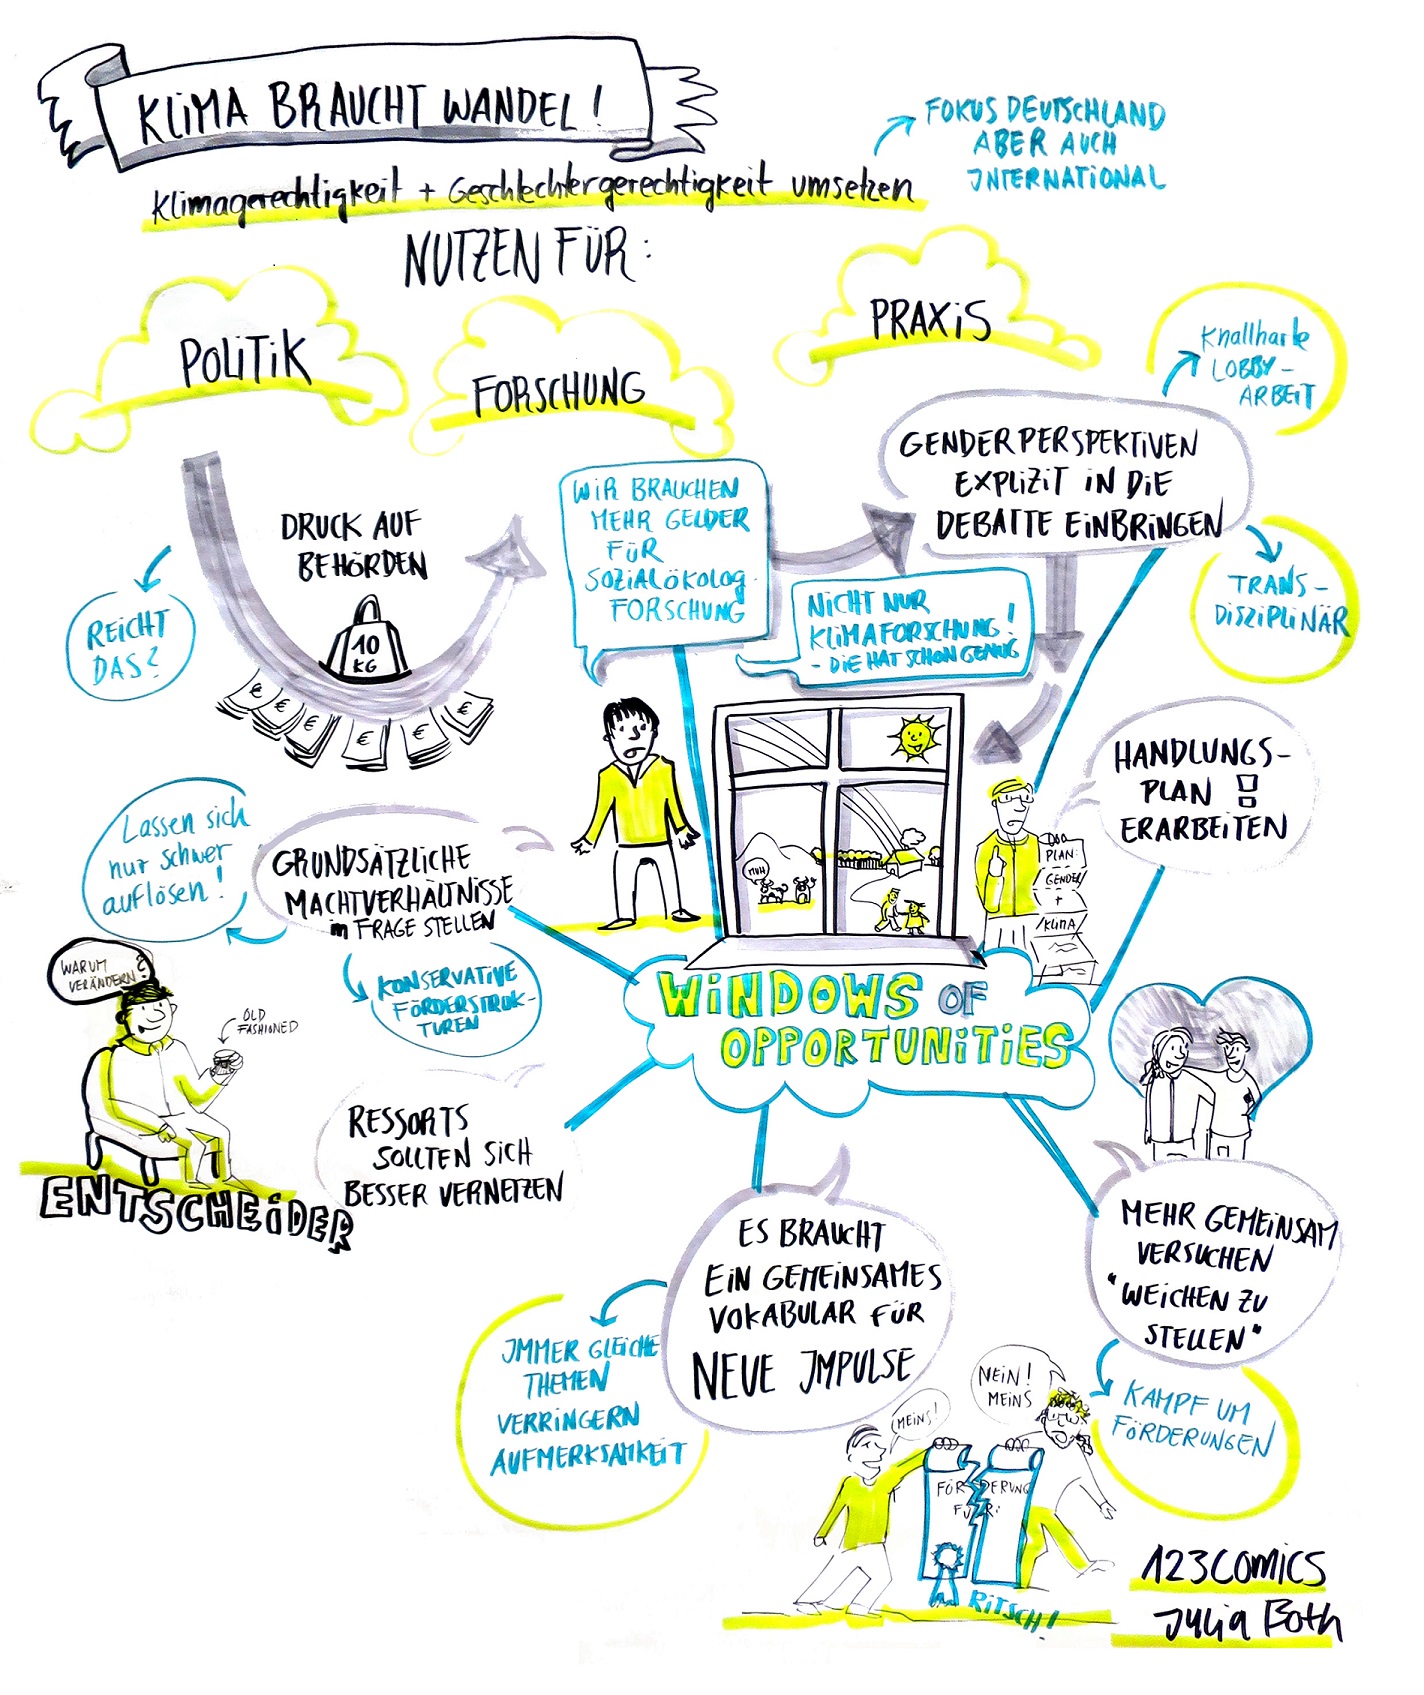 KLiMA BRAUCHT WANDEL!
Klimagerechtigkeit + Geschlechtergerechtigkeit umsetzen
FOKUS DEUTSCHLAND
ABER AUCH
INTERNATIONAL
NUTZEN FÜR:
POLiTiK
FORSCHUNG
PRAXiS
Knallharte
LOBBY-
ARBEiT
GENDERPERSPEKTiVEN
EXPLiZiT iN DiE
DEBATTE EiNBRiNGEN
TRANS-
DiSZiPLiNÄR
DRUCK AUF
BEHÖRDEN
10
KG
€
€
€
€
€
€
REiCHT
DAS?
WiR BRAUCHEN
MEHR GELDER
FÜR
SOZiALÖKOLOG.
FORSCHUNG
NiCHT NUR
KLiMAFORSCHUNG!
- DiE HAT SCHON GENUG
HANDLUNGS-
PLAN !
ERARBEiTEN
DER
PLAN:
GENDER
+
KLiMA
MUH
Lassen sich
nur schwer
auflösen!
GRUNDSÄTZLiCHE
MACHTVERHÄLTNiSSE
in FRAGE STELLEN
KONSERVATiVE
FÖRDERSTRUK-
TUREN
WARUM
VERÄNDERN?
OLD
FASHIONED
ENTSCHEiDER
RESSORTS
SOLLTEN SiCH
BESSER VERNETZEN
WiNDOWS OF
OPPORTUNiTiES
ES BRAUCHT
EiN GEMEiNSAMES
VOKABULAR FÜR
NEUE IMPULSE
IMMER GLEiCHE
THEMEN
VERRiNGERN
AUFMERKSAMKEiT
MEHR GEMEiNSAM
VERSUCHEN
"WEiCHEN ZU
STELLEN"
KAMPF UM
FÖRDERUNGEN
MEiNS!
NEiN!
MEiNS
FÖRDERUNG
FÜR:
RiTSCH!
123COMiCS
Julia Both